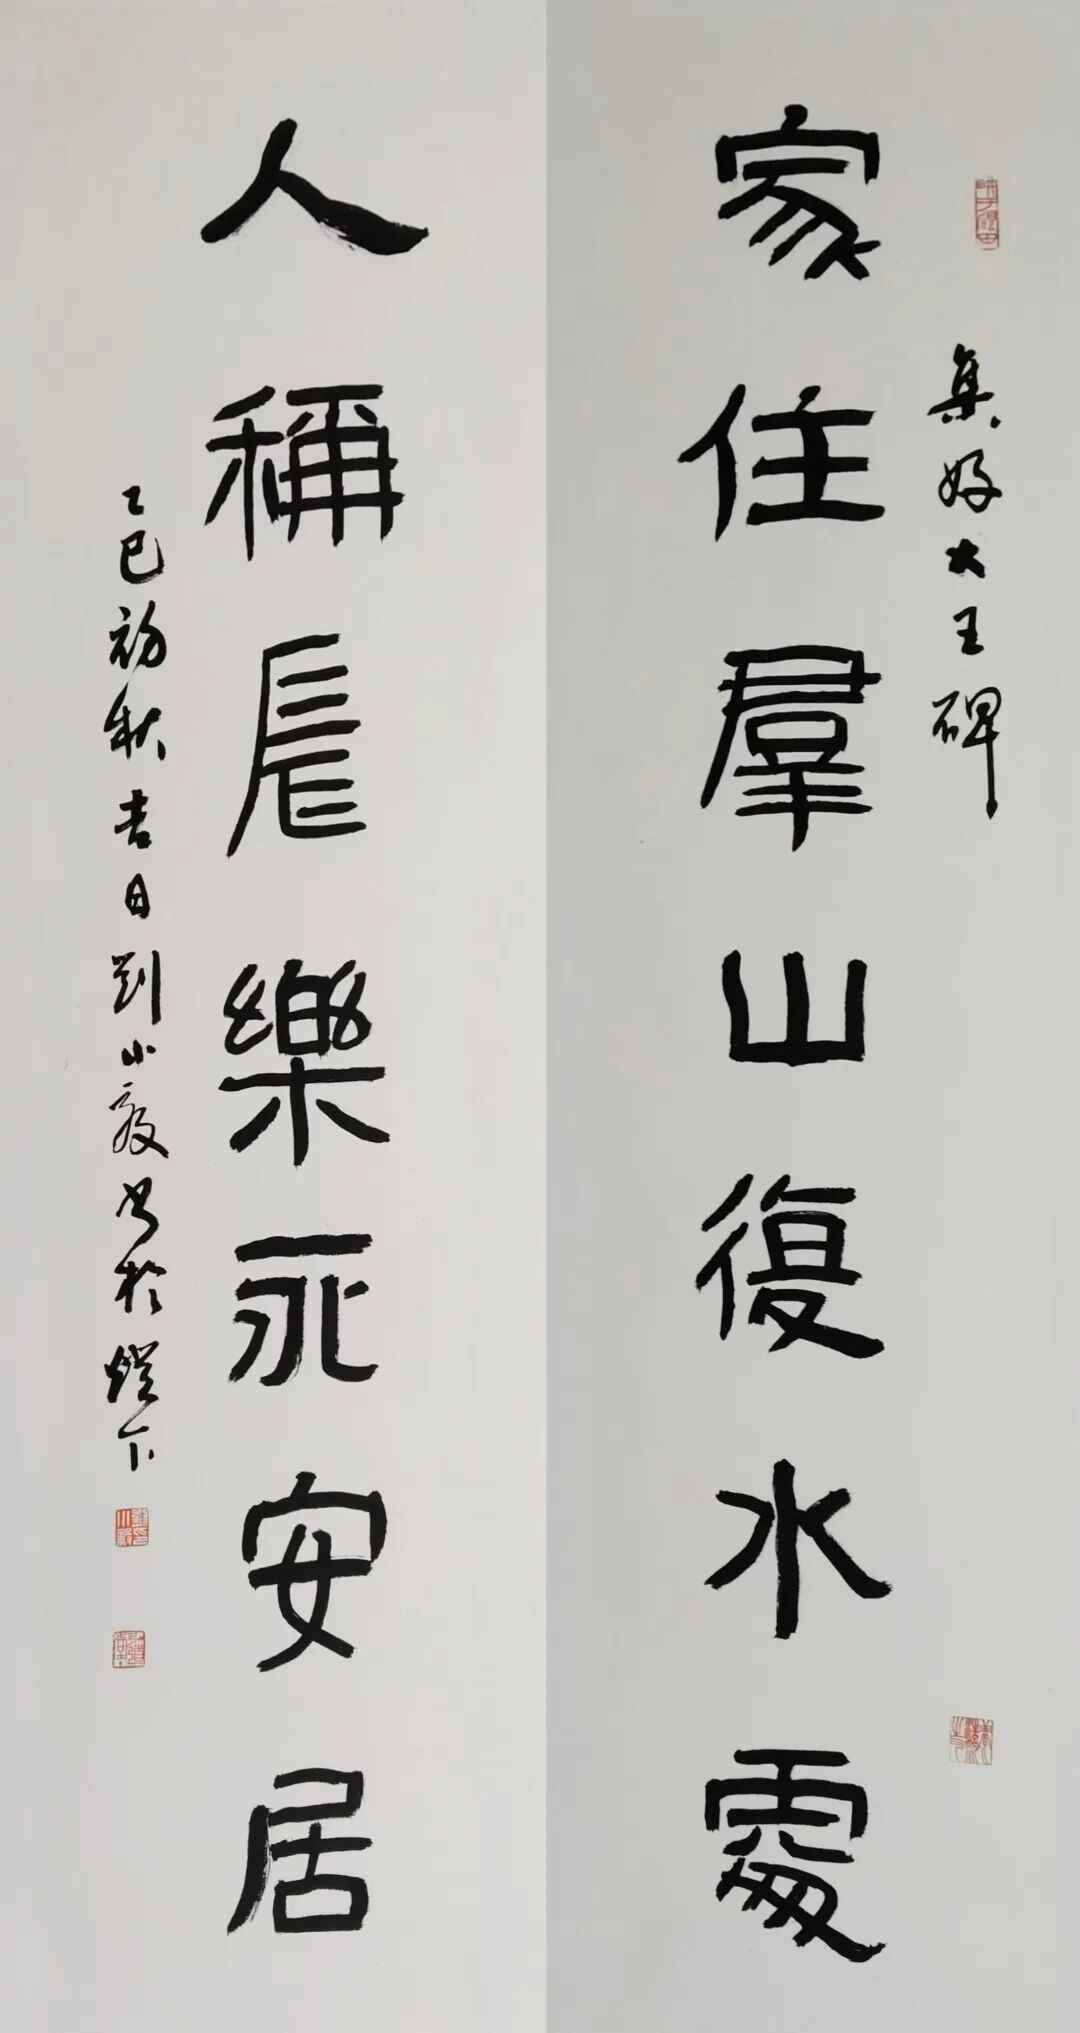 集好大王碑
家住羣山復水處
人稱長樂永安居
乙巳初秋吉日劉小 書於燈下